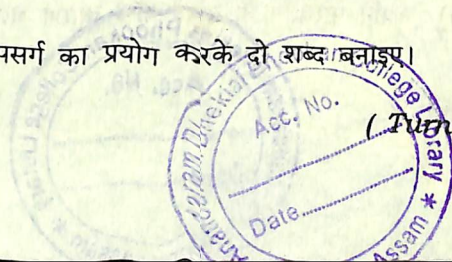 पसर्ग का प्रयोग करके दो शब्द बनाइए।
( Turn
Anandaram Dhekial College Library * Assam
Acc. No.
Date